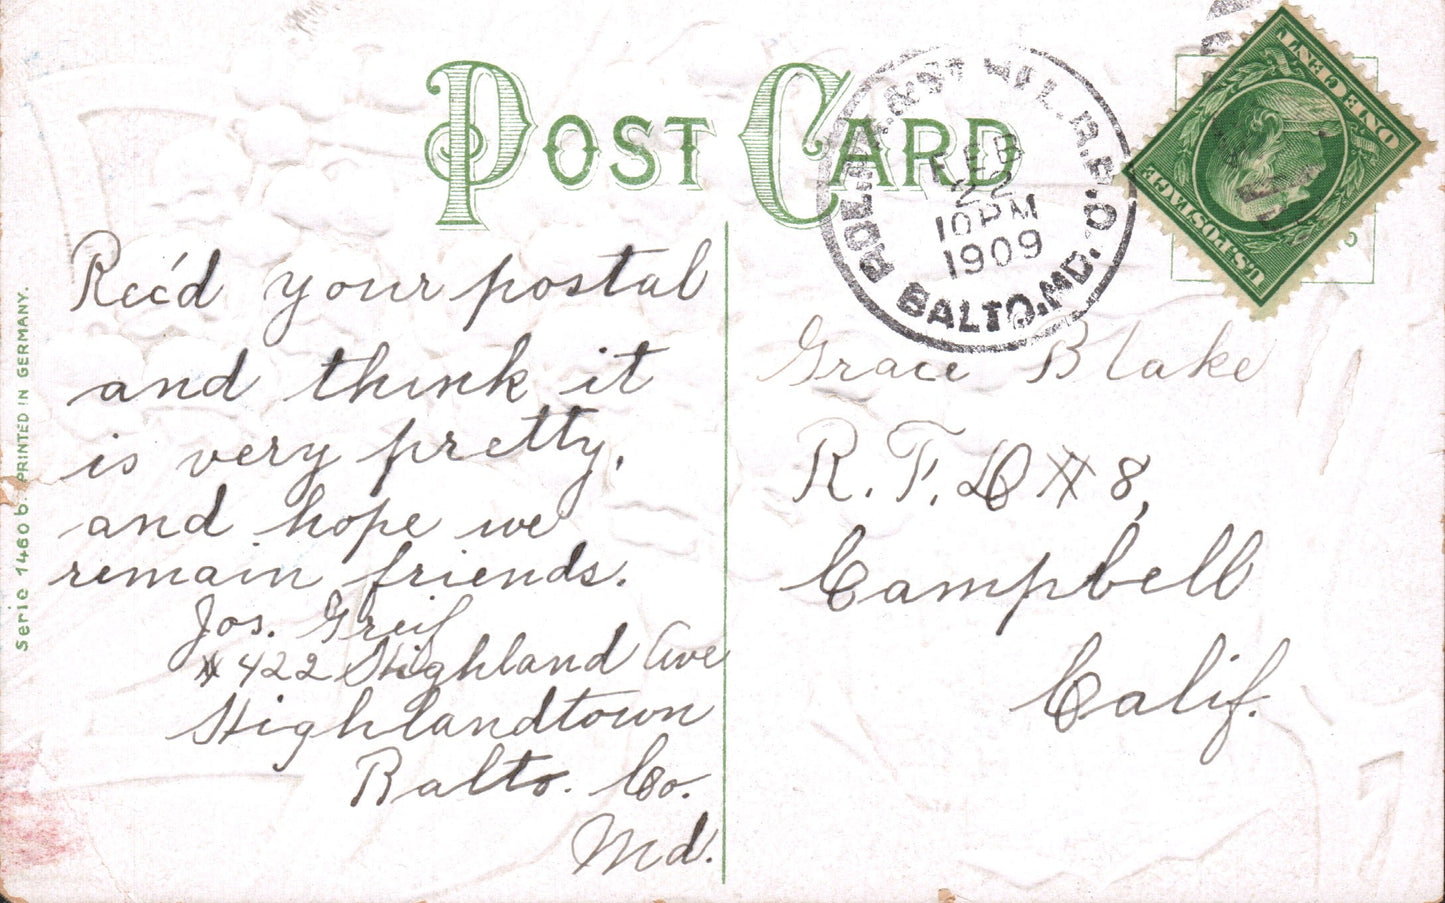 POST CARD
FEB
22
10 PM
1909
BALTO. MD.
U.S. POSTAGE
ONE CENT
Rec'd your postal
and think it
is very pretty,
and hope we
remain friends.
Jos. Greif
# 422 Highland Ave
Highlandtown
Balto. Co.
Md.
Grace Blake
R. F. D # 8,
Campbell
Calif.
Serie 1460 b. PRINTED IN GERMANY.